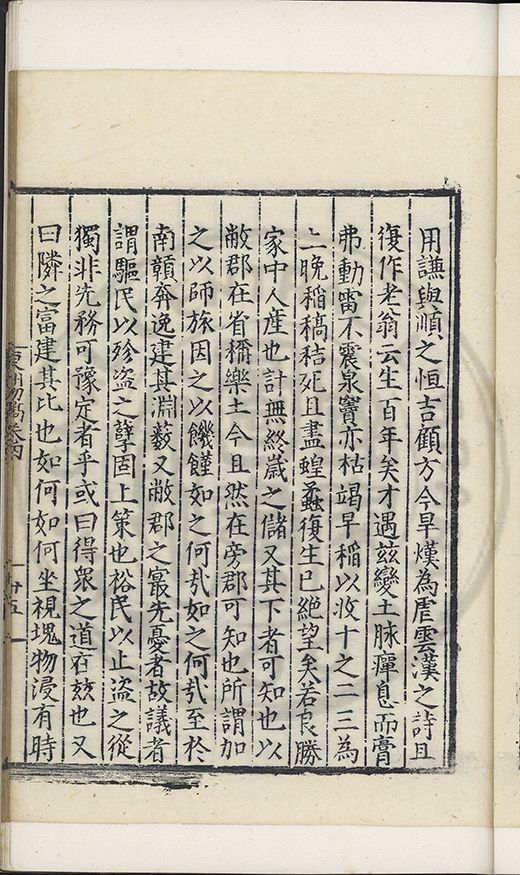 用謙與順之恒吉顧方今旱熯為虐雲漢之詩且
復作老翁云生百年矣才遇茲變土脉癉息而膏
弗動雷不震泉竇亦枯竭早稲以收十之二三為
上晩稲稿秸死且盡蝗蟊復生已絶望矣若良勝
家中人産也計無終歳之儲又其下者可知也以
敝郡在省稱樂土今且然在旁郡可知也所謂加
之以師旅因之以饑饉如之何㢤如之何㢤至於
南贛奔逸建其淵藪又敝郡之㝡先憂者故議者
謂驅民以殄盗之孽固上策也裕民以止盗之從
獨非先務可豫定者乎或曰得衆之道在兹也又
曰隣之富建其比也如何如何坐視塊物浸有時
東洲初稿卷四
廿五